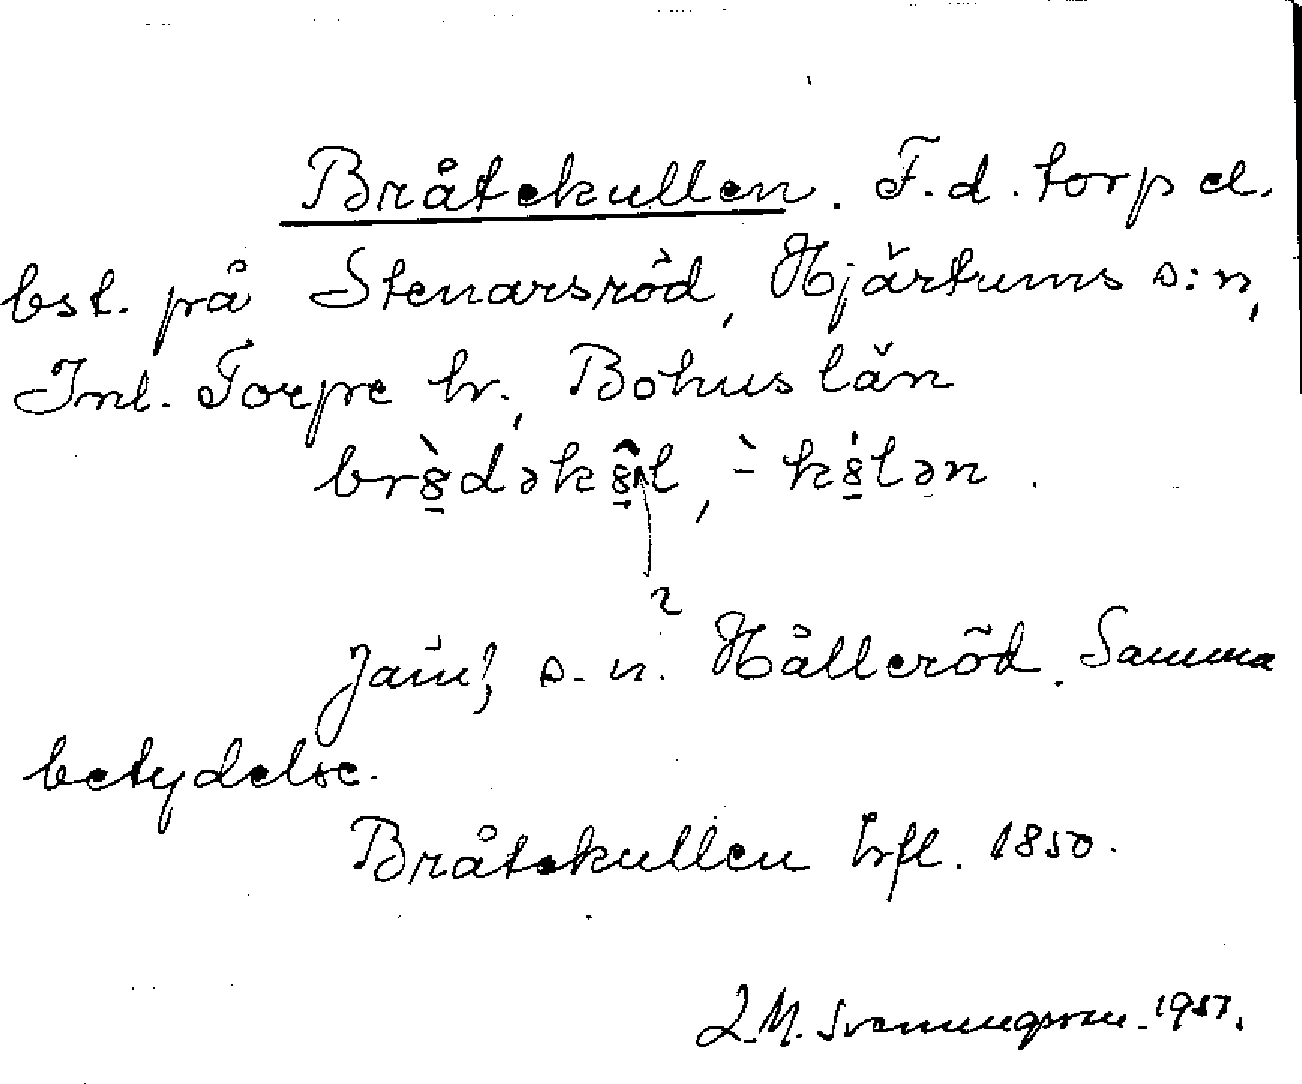 Bråtekullen. F.d. torp el.
bst. på Stenarsröd, Hjärtums s:n,
Inl. Torpe hr., Bohuslän
Jämf. s.n. Hålleröd. Samma
betydelse.
Bråtekullen hfl. 1850.
L.M. Svenungsson 1957.